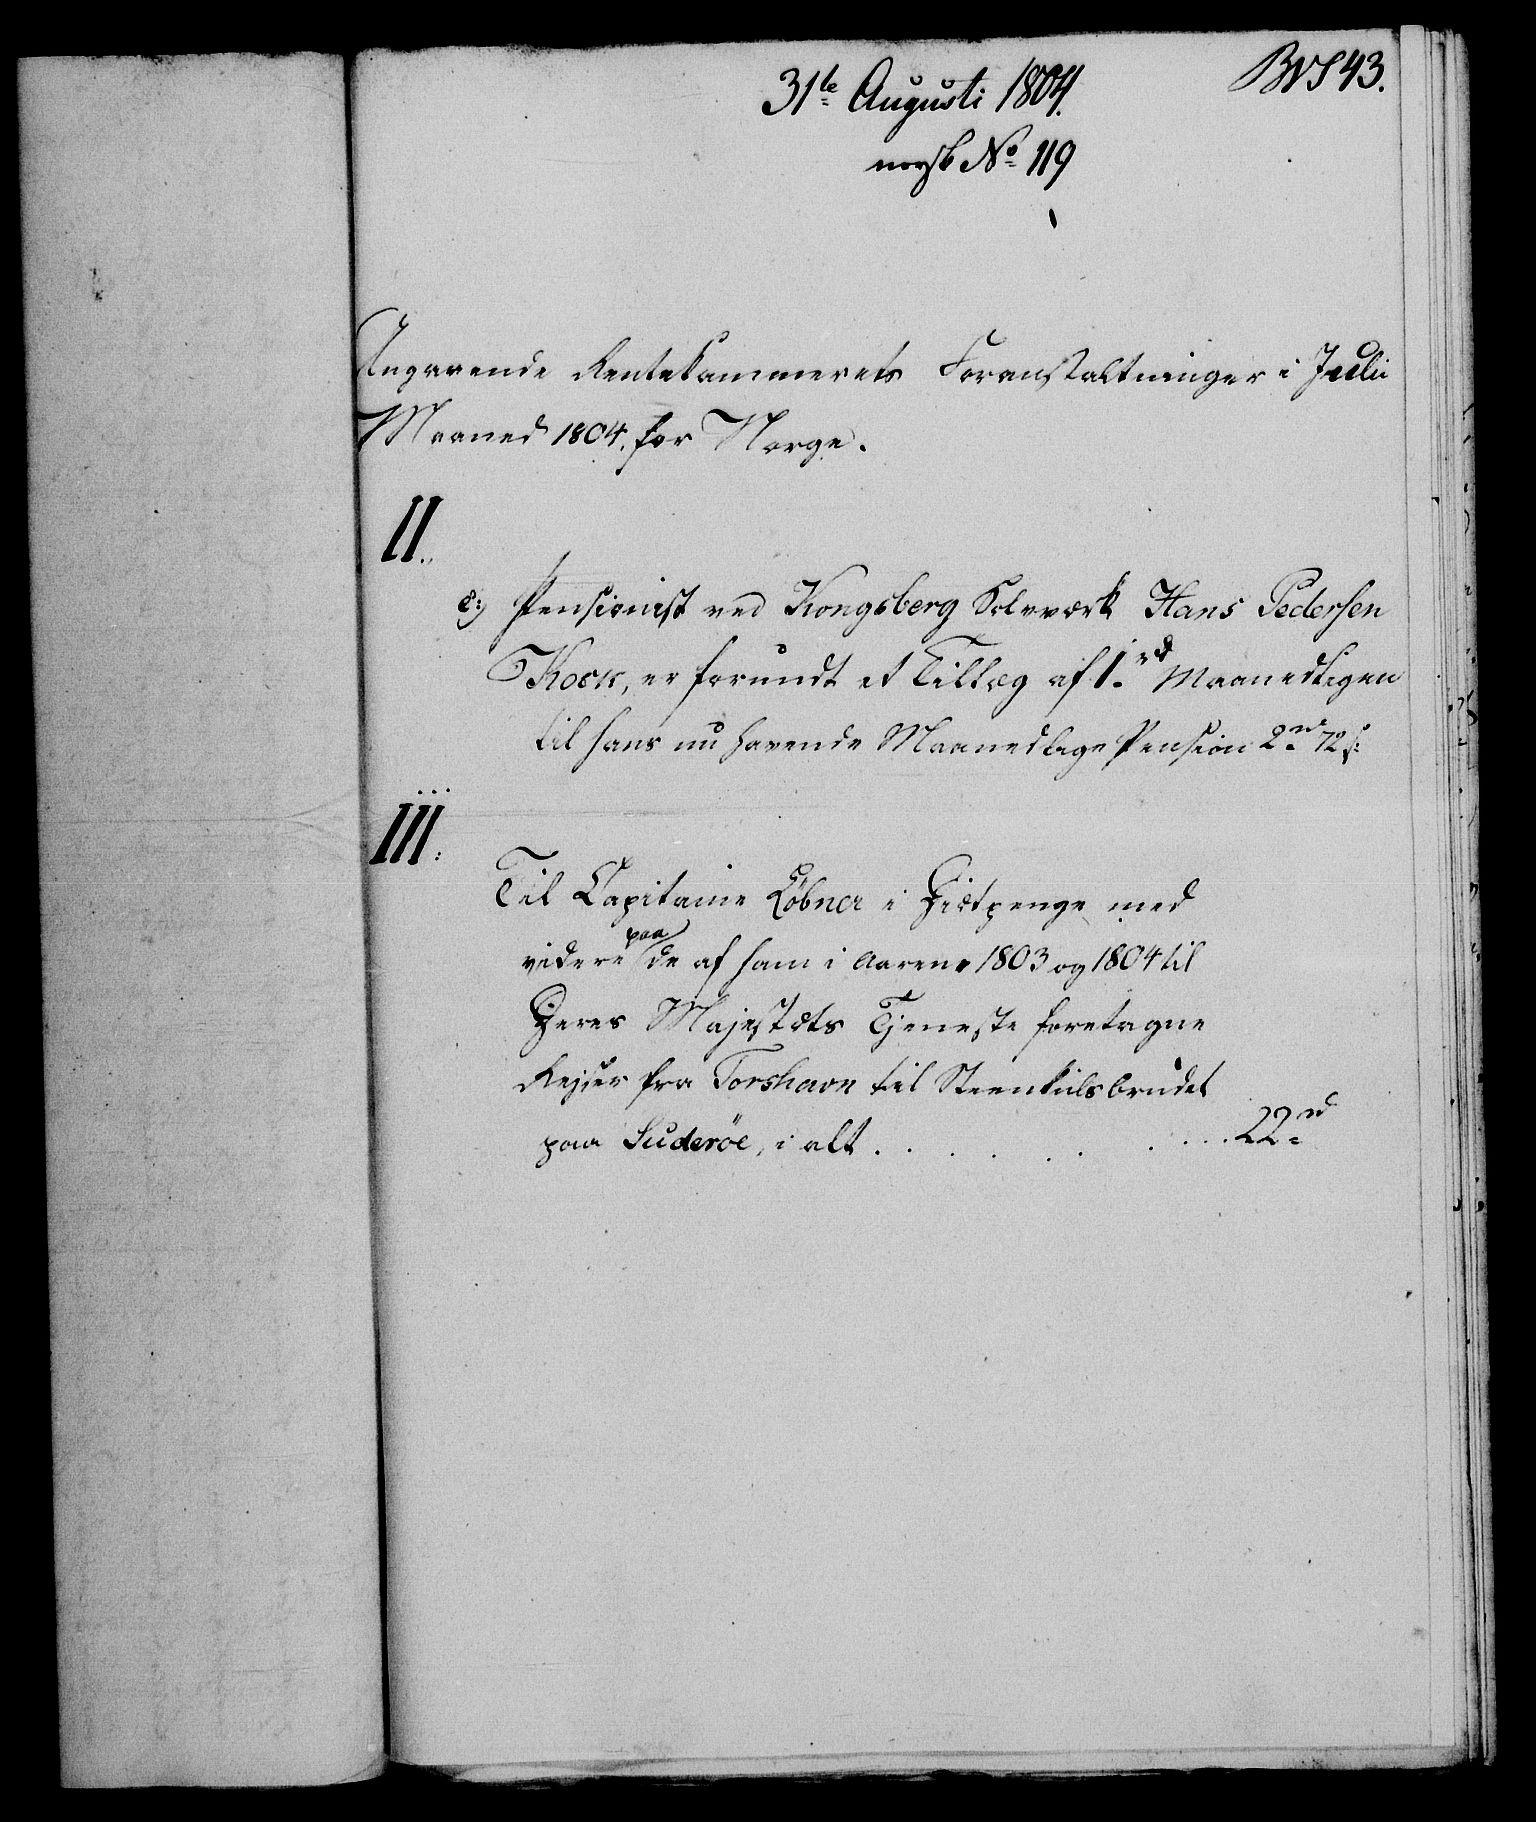 31te Augusti 1804.
BVS 43.
norsk No 119
Angaaende Rentekammerets Foranstaltninger i Julii
Maaned 1804. for Norge.
II.
e) Pensionist ved Kongsberg Sølvværk Hans Pedersen
Kock, er forundt et Tillæg af 1. rd Maanedligen
til hans nu havende Maanedlige Pension 2 rd 72 s:
III:
Til Capitaine Løbner i Diætpenge med
videre paa de af ham i Aarene 1803 og 1804 til
Deres Majestæts Tjeneste foretagne
Rejser fra Torshavn til Steenkulsbrudet
paa Suderöe, i alt . . . . . . . . . 22 rd